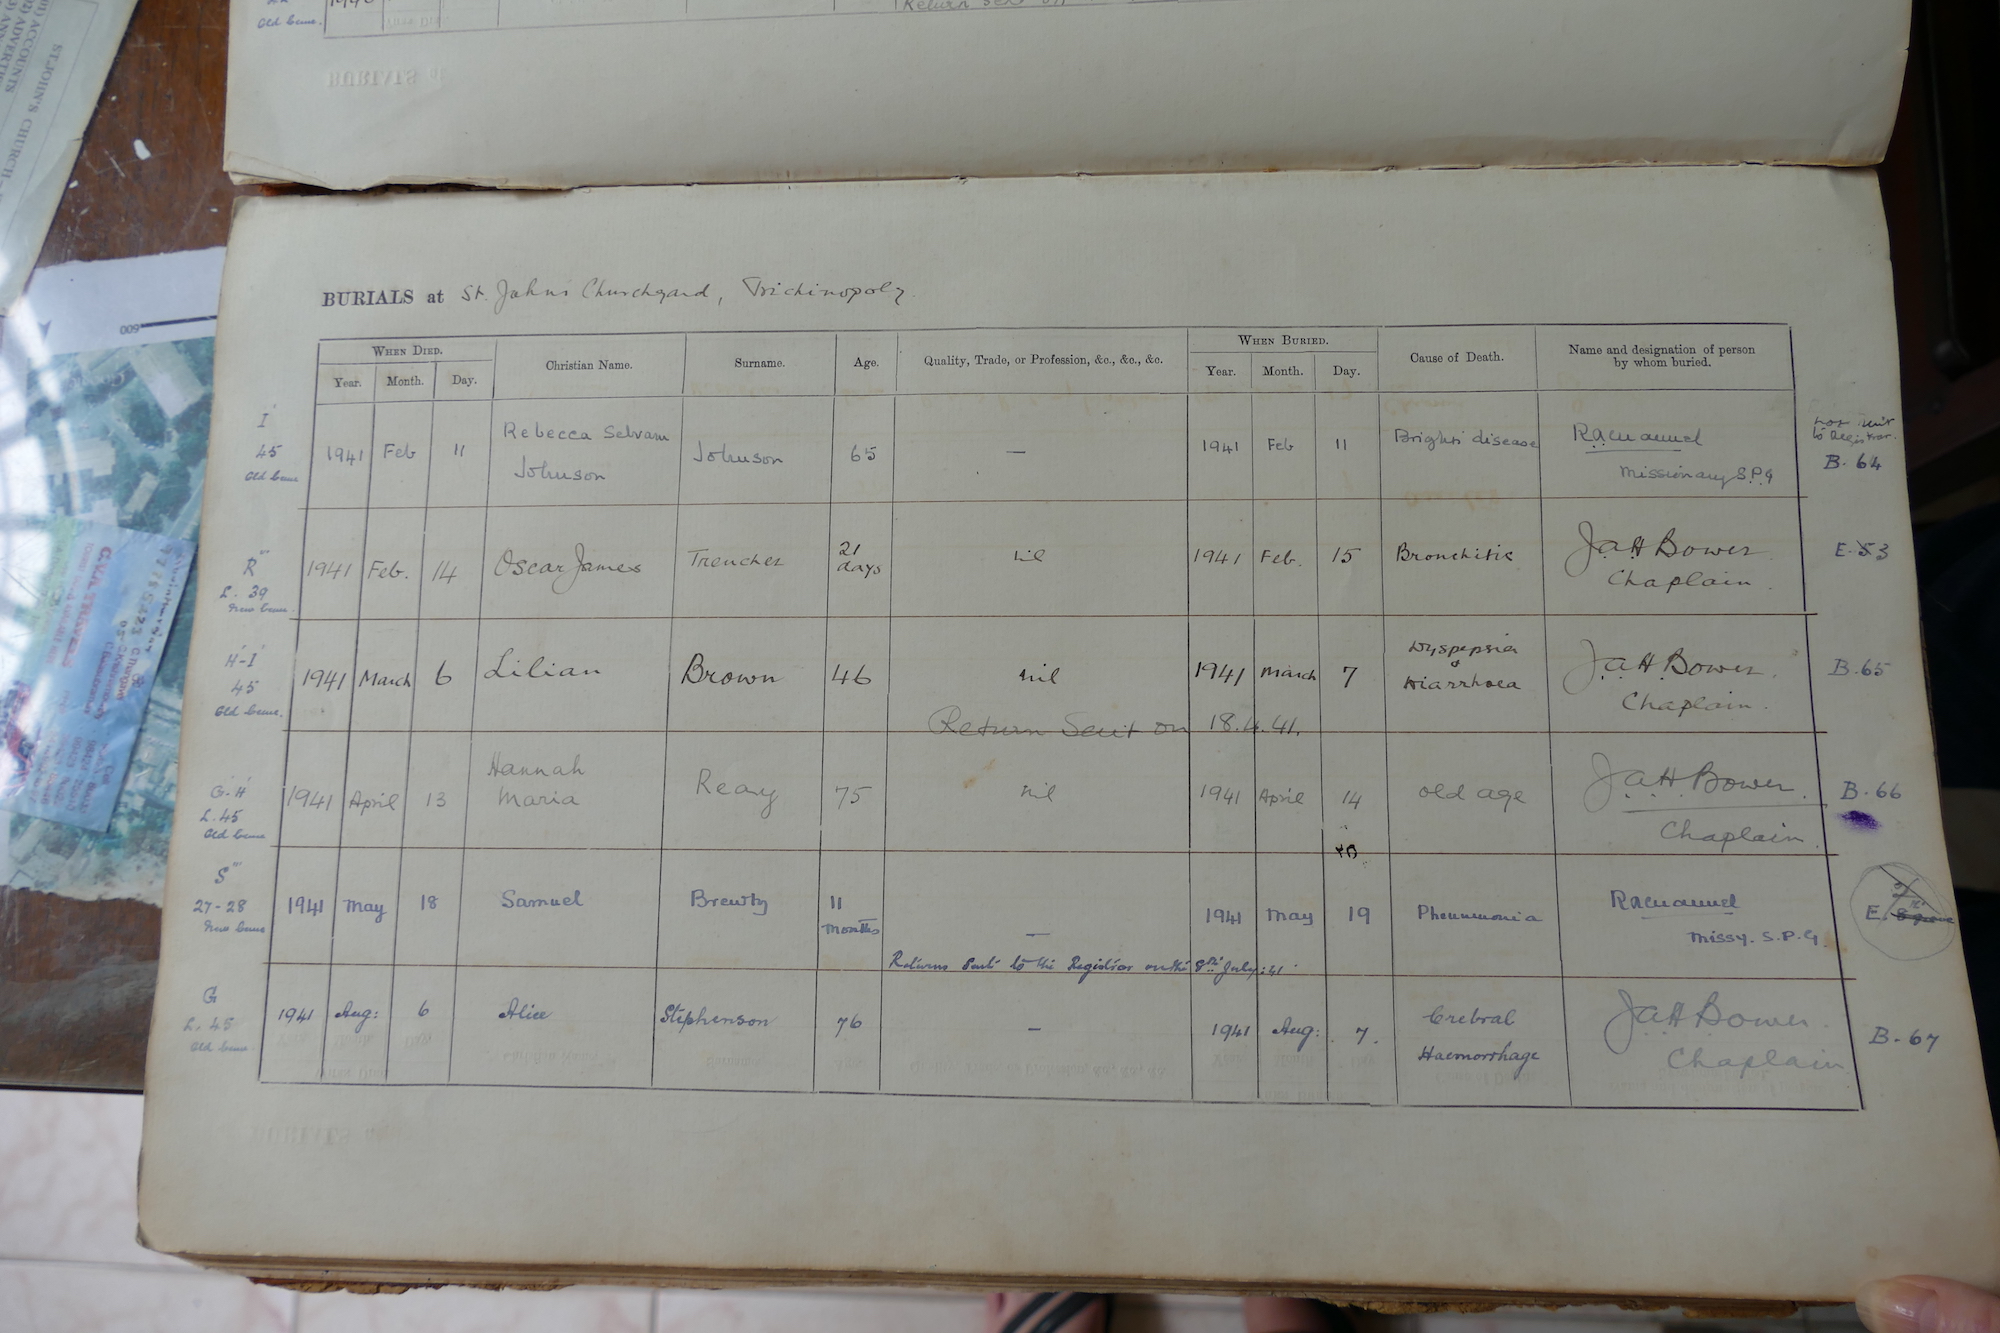 Old Ceme.
1940
BURIALS at St. Johns Churchyard, Trichinopoly
WHEN DIED.
Year. Month. Day.
Christian Name.
Surname.
Age.
Quality, Trade, or Profession, &c., &c., &c.
WHEN BURIED.
Year. Month. Day.
Cause of Death.
Name and designation of person
by whom buried.
I'
45
Old Ceme
1941 Feb 11
Rebecca Selvam
Johnson
Johnson
65
—
1941 Feb 11
Brights disease
Missionary S.P.G
to Registrar.
B. 64
R'''
L. 39
New Ceme.
1941 Feb. 14
Oscar James
Trencher
21
days
nil
1941 Feb. 15
Bronchitis
JaH Bower
Chaplain.
E. 53
H'-I'
45
Old Ceme.
1941 March 6
Lilian
Brown
46
nil
1941 March 7
Dyspepsia
&
Diarrhoea
JaH Bower.
Chaplain.
B. 65
Return Sent on 18.4.41.
G'.H'
L.45
Old Ceme
1941 April 13
Hannah
Maria
Reavy
75
nil
1941 April 14
old age
JaH Bower.
Chaplain.
B. 66
S'''
27-28
New Ceme
1941 May 18
Samuel
Brewty
11
months
—
1941 May 19
Pheunmonia
Missy. S.P.G.
E.
Returns Sent to the Registrar on the 8th July: 41
G
L. 45
Old Ceme.
1941 Aug: 6
Alice
Stephenson
76
—
1941 Aug: 7.
Crebral
Haemorrhage
JaH Bower.
Chaplain
B. 67